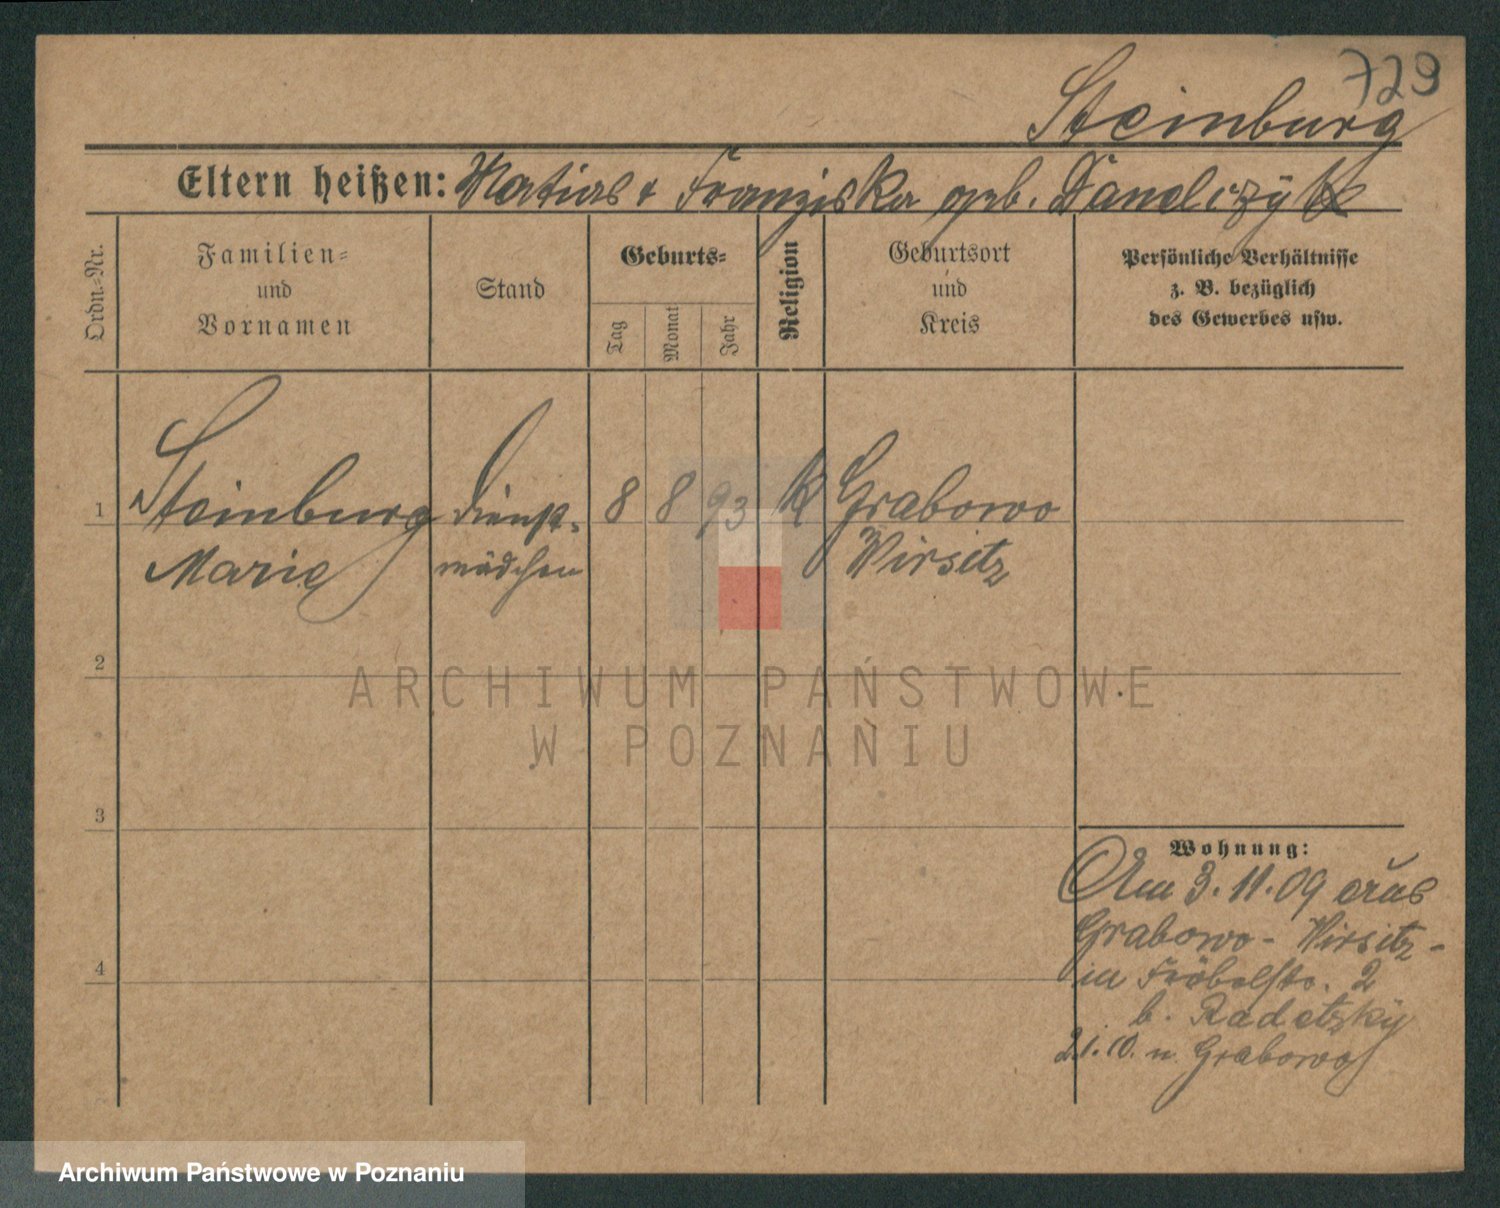 729
Steinburg
Eltern heißen: Matias & Franziska geb. Danelczyk
Ordn.-Nr.
Familien-
und
Vornamen
Stand
Geburts-
Tag
Monat
Jahr
Religion
Geburtsort
und
Kreis
Persönliche Verhältnisse
z. B. bezüglich
des Gewerbes usw.
1 Steinburg Dienst- 8 8 93 k Grabowo
Marie mädchen Wirsitz
2
ARCHIWUM PAŃSTWOWE
W POZNANIU
3
Wohnung:
Am 3.11.09 aus
Grabowo - Wirsitz -
in Fröbelstr. 2
b. Radetzky
4
2.1.10. n. Grabowo
Archiwum Państwowe w Poznaniu